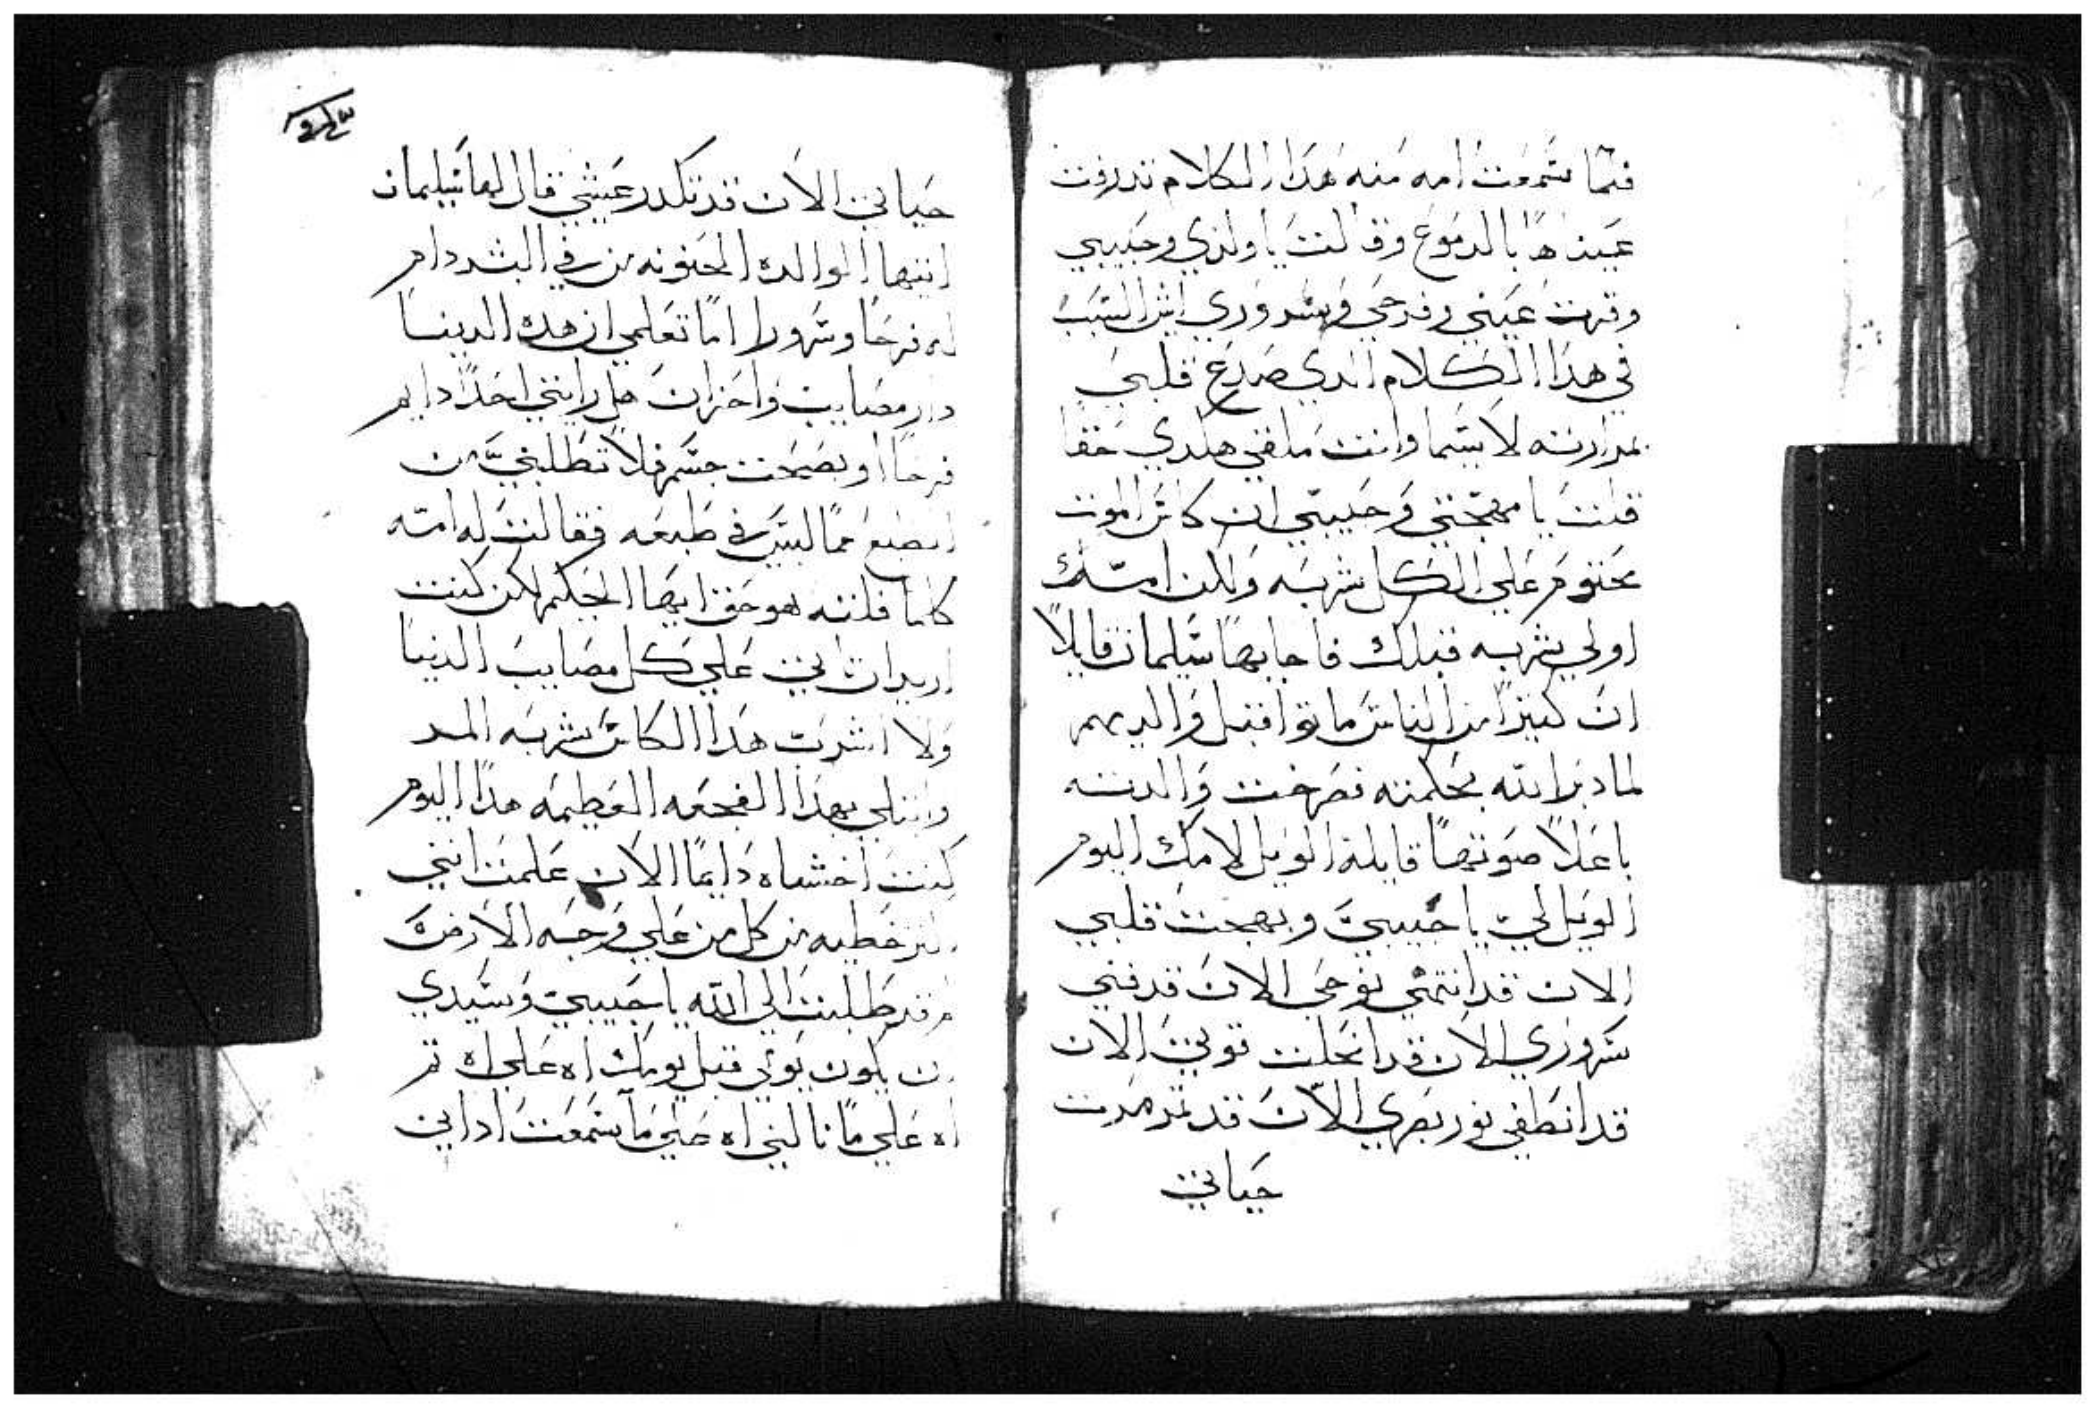 فلما سمعت امه منه هدا الكلام تدرفت
عيناها بالدموع وقالت يا ولدي وحبيبي
وقرت عيني وفرحي وسروري ايش السبب
في هدا الكلام الدي صدع قلبي
بمرارته لا سيما وانت ملقي هلدي حقا
قلت يا مهجتي وحبيبي ان كاس الموت
محتوم علي الكل شربه ولكن امك
اولي بشربه قبلك فاجابها سليمان قايلاً
ان كثيرا من الناس ماتوا قبل والديهم
لما دبر الله بحكمته فصرخت والدته
باعلا صوتها قايلة الويل لامك اليوم
الويل لي يا حبيبي وبهجت قلبي
الان قد انتهي نوحي الان قد فني
سروري الان قد انحلت قوتي الان
قد انطفي نور بصري الان قد تمرمرت
حياتي
حياتي الان قد تكدر عيشي قال لها سليمان
ايتها الوالده الحنونه من في البشر دام
له فرحا وسرورا اما تعلمي ان هده الدنيا
دار مصايب واحزان هل رايتي احداً دايم
فرحاً او بصحت جسم فلا تطلبي من
الطبع مما ليس في طبعه فقالت له امه
كلما قلته هو حق ايها الحكيم لكن كنت
اريد ان علي كل مصايب الدنيا
ولا اشرب هدا الكاس بشربه المر
وابتلي بهدا الفجعه العظيمه هدا اليوم
كنت اخشاه دايما الان علمت انني
اكثر خطيه من كل من علي وجه الارض
قد طلبت الي الله يا حبيبي وسيدي
ان يكون يومي قبل يومك اه علي اه ثم
اه علي ما نالني اه حين ما سمعت ادانى